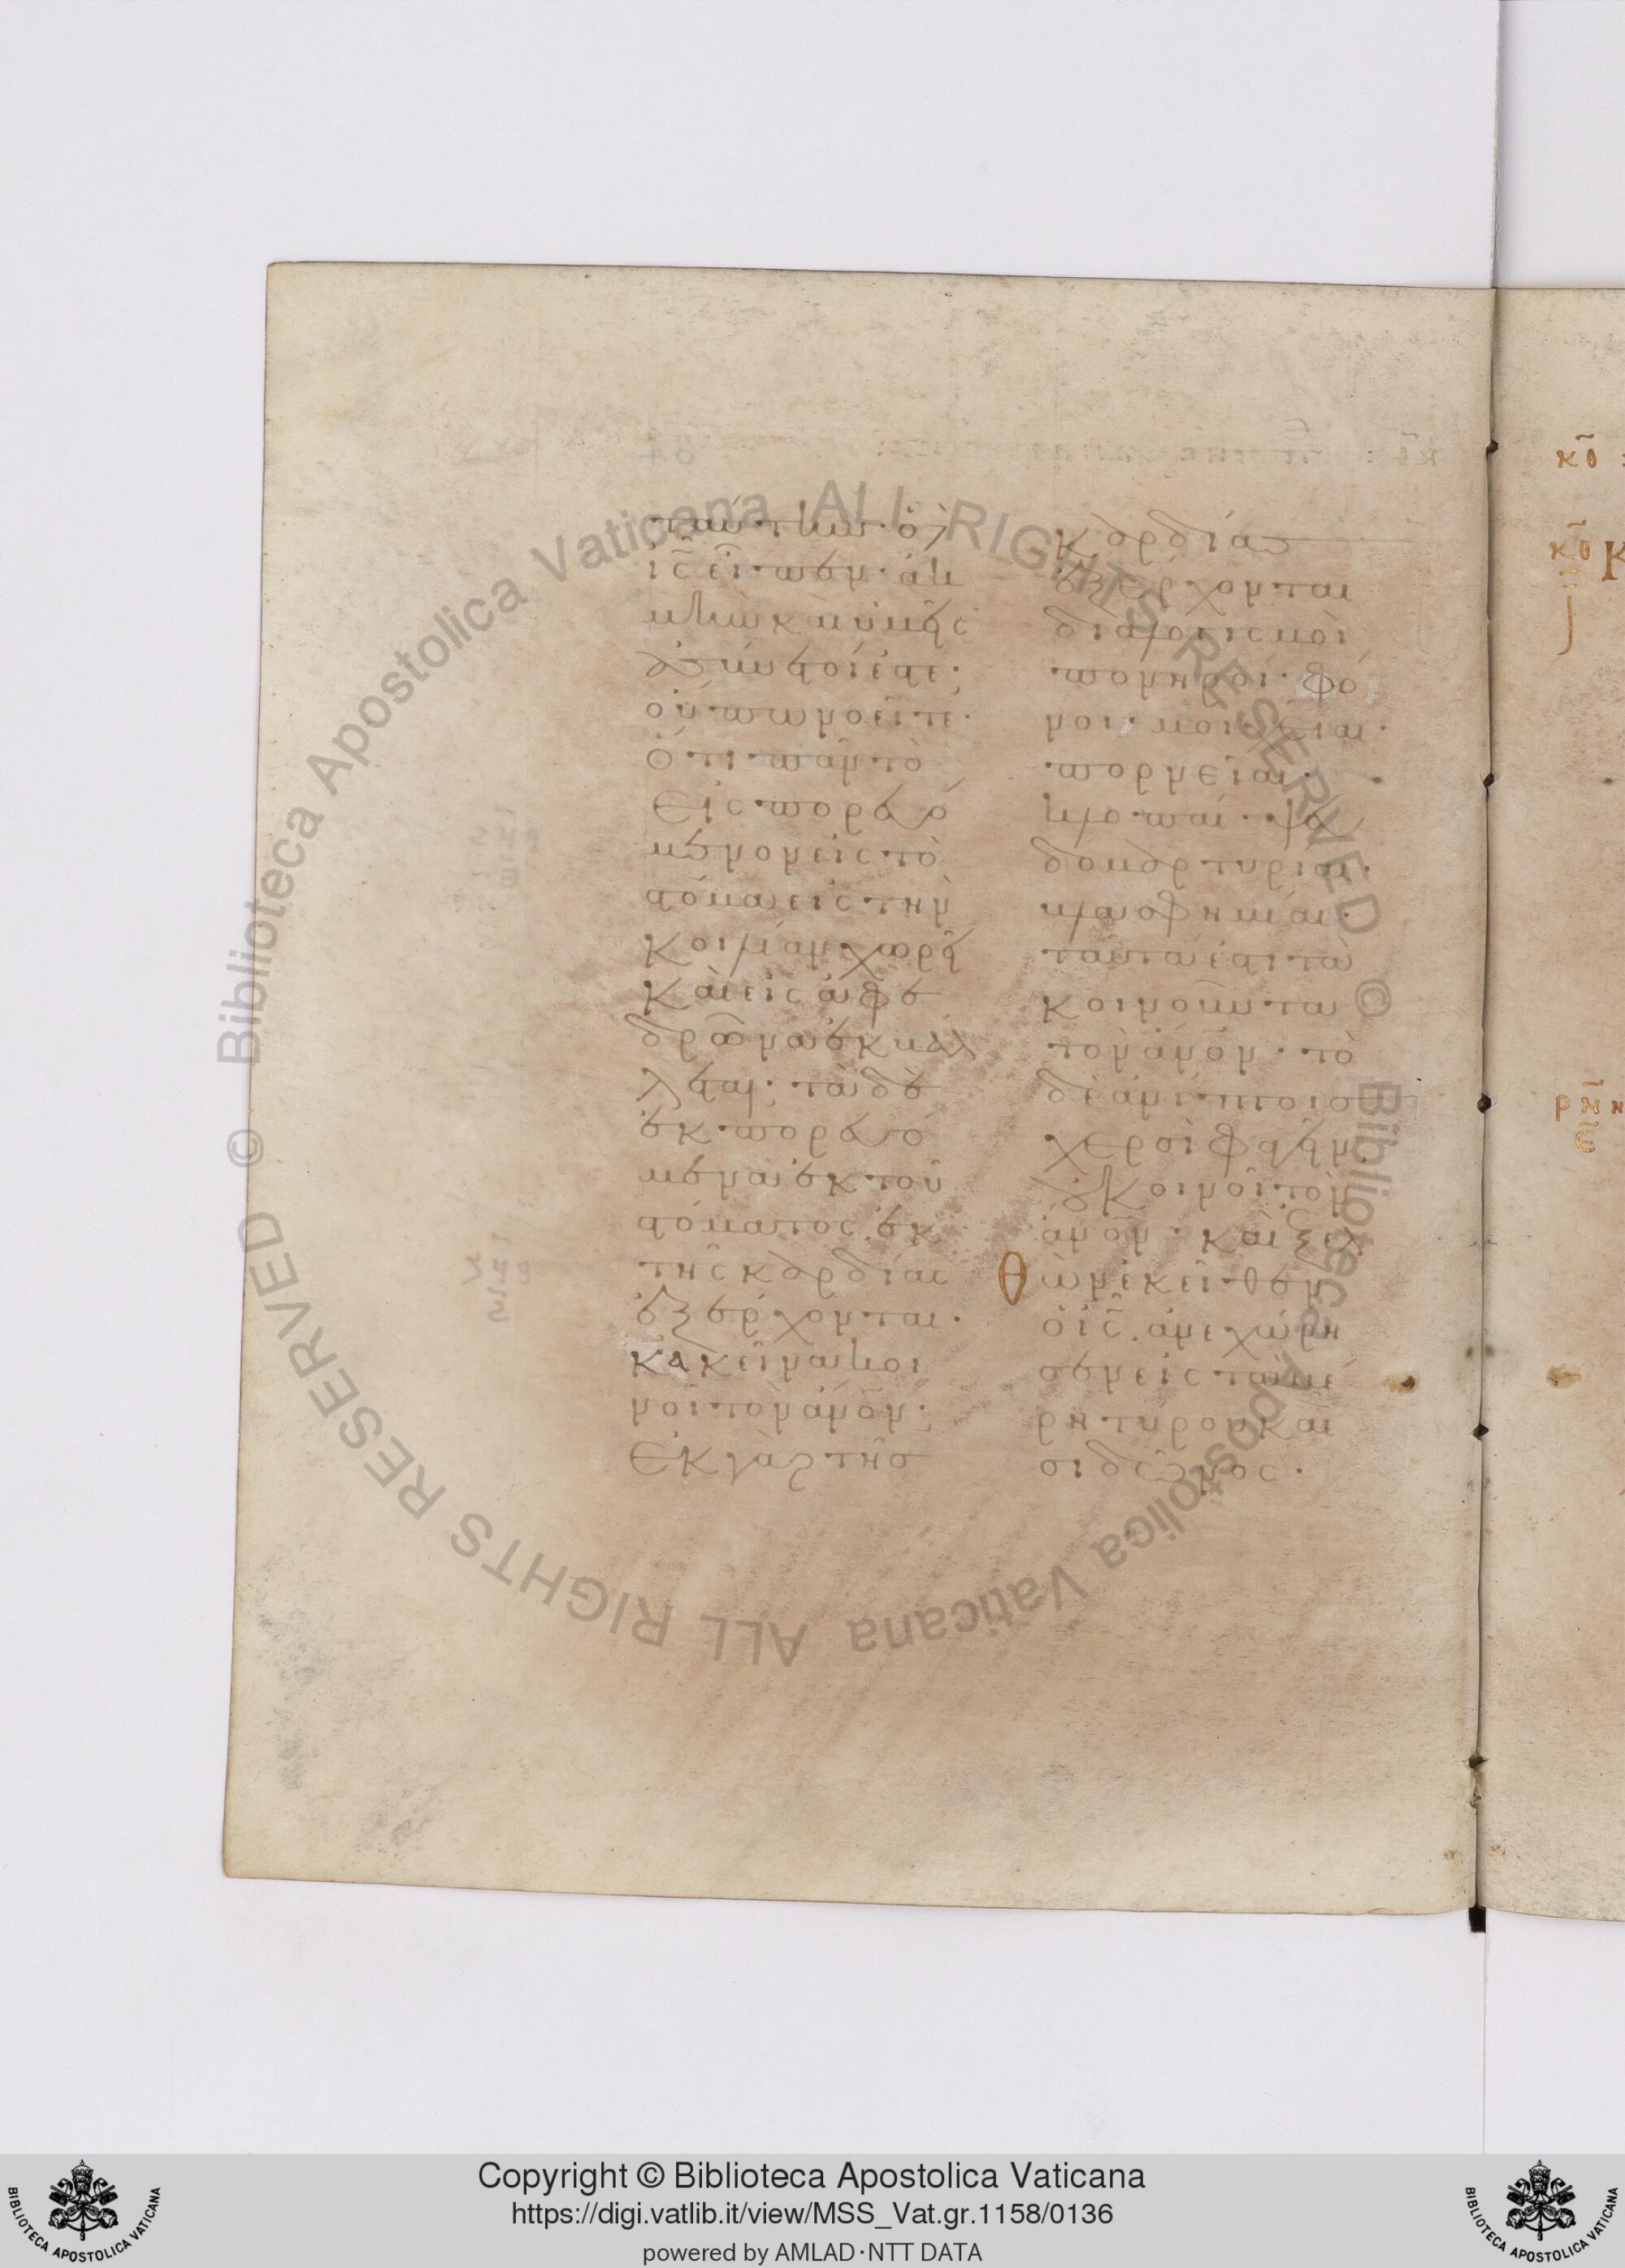 ταύτην· ὁ δὲ
ις εἶπεν· ἀκ
μὴν καὶ ὑμεῖς
ἀσύνετοί ἐστε·
οὔπω νοεῖτε·
ὅτι πᾶν τὸ
εἰσπορευό
μενον εἰς τὸ
στόμα εἰς τὴν
κοιλίαν χωρεῖ
καὶ εἰς ἀφε
δρῶνα ἐκβάλ
λεται· τὰ δὲ
ἐκπορευό
μενα ἐκ τοῦ
στόματος ἐκ
τῆς καρδίας
ἐξέρχονται·
κακεῖνα κοι
νοῖ τὸν ἄνον·
ἐκ γὰρ τῆς
καρδίας
ἐξέρχονται
διαλογισμοὶ
πονηροί· φό
νοι· μοιχεῖαι·
πορνεῖαι·
κλοπαί· ψευ
δομαρτυρίαι·
βλασφημίαι·
ταῦτά ἐστι τὰ
κοινοῦντα
τὸν ἄνον· τὸ
δὲ ἀνίπτοις
χερσὶ φαγεῖν
οὐ κοινοῖ τὸν
ἄνον· καὶ ἐξελ
θὼν ἐκεῖθεν
ὁ ις ἀνεχώρη
σεν εἰς τὰ μέ
ρη τύρου καὶ
σιδῶνος·
κθ
κθ
Κ
Biblioteca Apostolica Vaticana ALL RIGHTS RESERVED ©
Biblioteca Apostolica Vaticana ALL RIGHTS RESERVED ©
Copyright © Biblioteca Apostolica Vaticana
https://digi.vatlib.it/view/MSS_Vat.gr.1158/0136
powered by AMLAD·NTT DATA
BIBLIOTECA APOSTOLICA VATICANA
BIBLIOTECA APOSTOLICA VATICANA